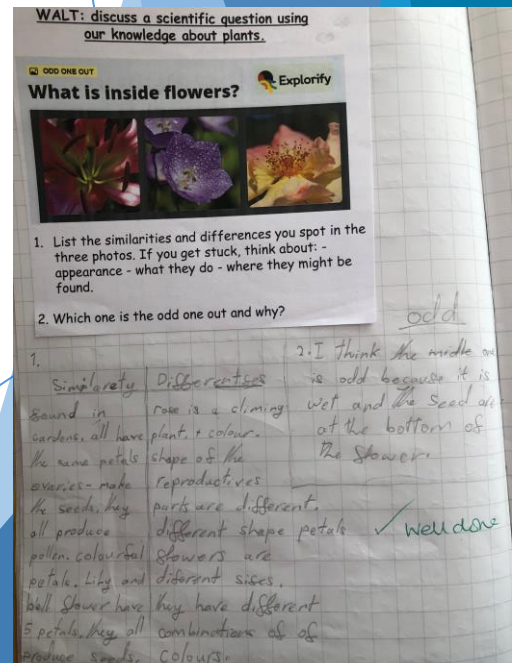 WALT: discuss a scientific question using
our knowledge about plants.
ODD ONE OUT
Explorify
What is inside flowers?
1. List the similarities and differences you spot in the
three photos. If you get stuck, think about: -
appearance - what they do - where they might be
found.
2. Which one is the odd one out and why?
odd
1.
Similarety
found in
gardens, all have
the same petals
overies - make
the seeds, they
all produce
pollen. colourful
petals. Lily and
bell flower have
5 petals. They all
produce seeds.
Differentses
rose is a climing
plant. + colour.
shape of the
reproductives
parts are different.
different shape petals
flowers are
diferent sises.
they have different
combinations of of
colours.
2. I think the middle one
is odd because it is
wet and the seed are
at the bottom of
the flower.
✓ well done